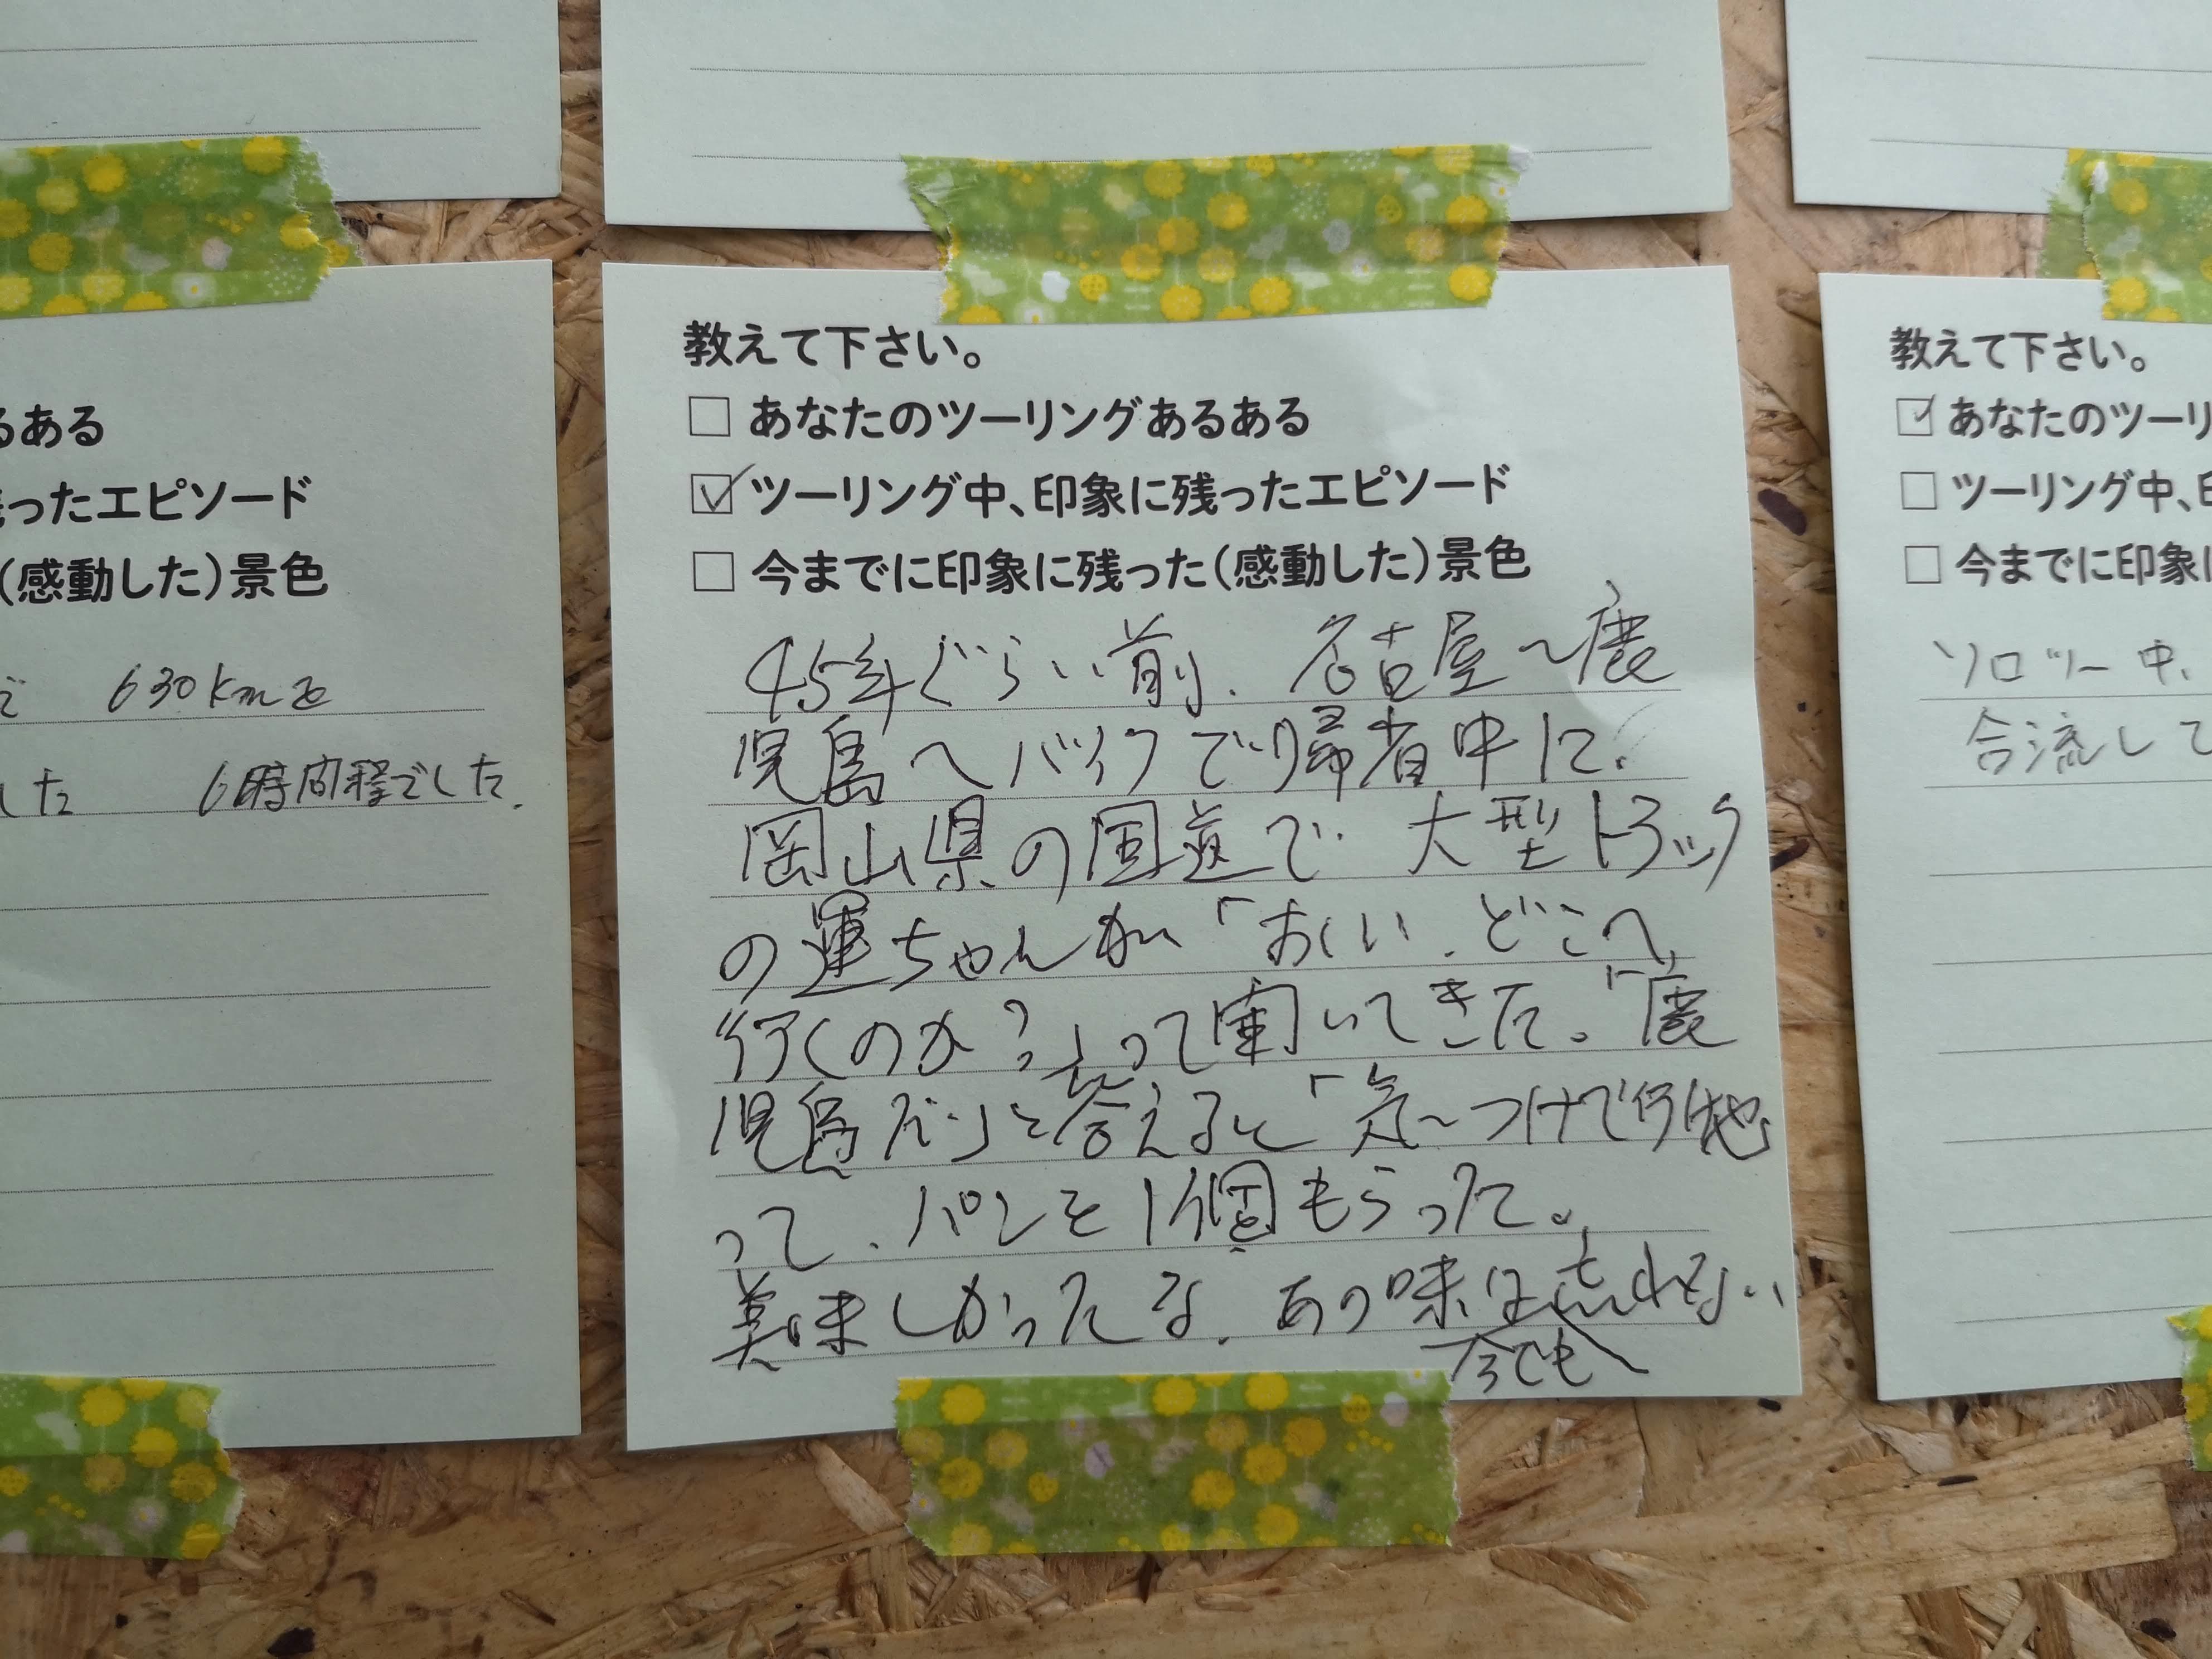 るある
ったエピソード
(感動した)景色
630kmを
した 6時間程でした.
教えて下さい。
□ あなたのツーリングあるある
☑ ツーリング中、印象に残ったエピソード
□ 今までに印象に残った(感動した)景色
45年ぐらい前、名古屋〜鹿
児島へバイクで帰省中に、
岡山県の国道で、大型トラック
の運ちゃんが「おーい、どこへ
行くのか?」って聞いてきた。「鹿
児島だ」と答えると「気〜つけて行け地」
って、パンを1個もらった。
美味しかったな、あの味は忘れない
今でも
教えて下さい。
☑ あなたのツーリ
□ ツーリング中、印
□ 今までに印象に
ソロツー中、
合流して